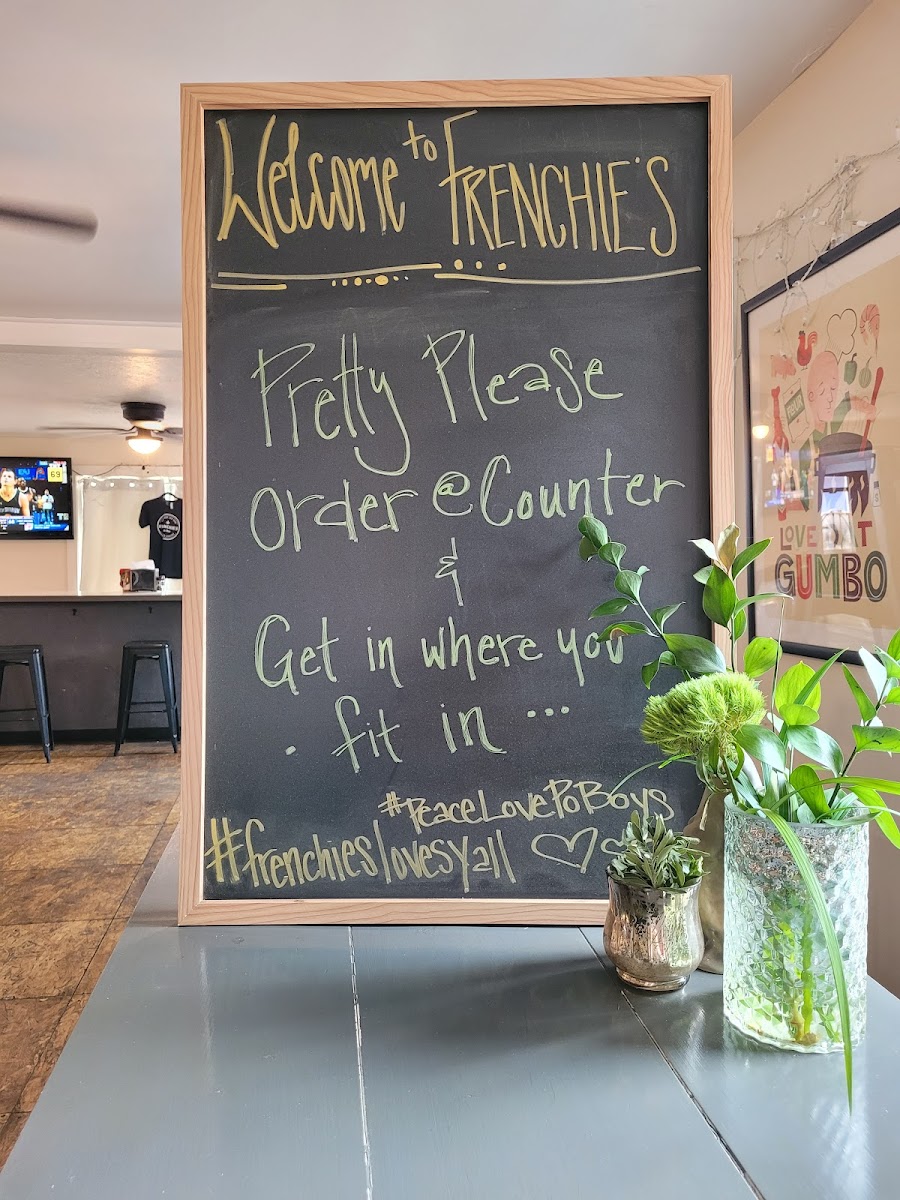 Welcome to FRENCHIE'S
Pretty Please
order @ Counter
&
Get in where you
fit in ...
#PeaceLovePoBoys
#frenchieslovesyall
69
LOVE
GUMBO